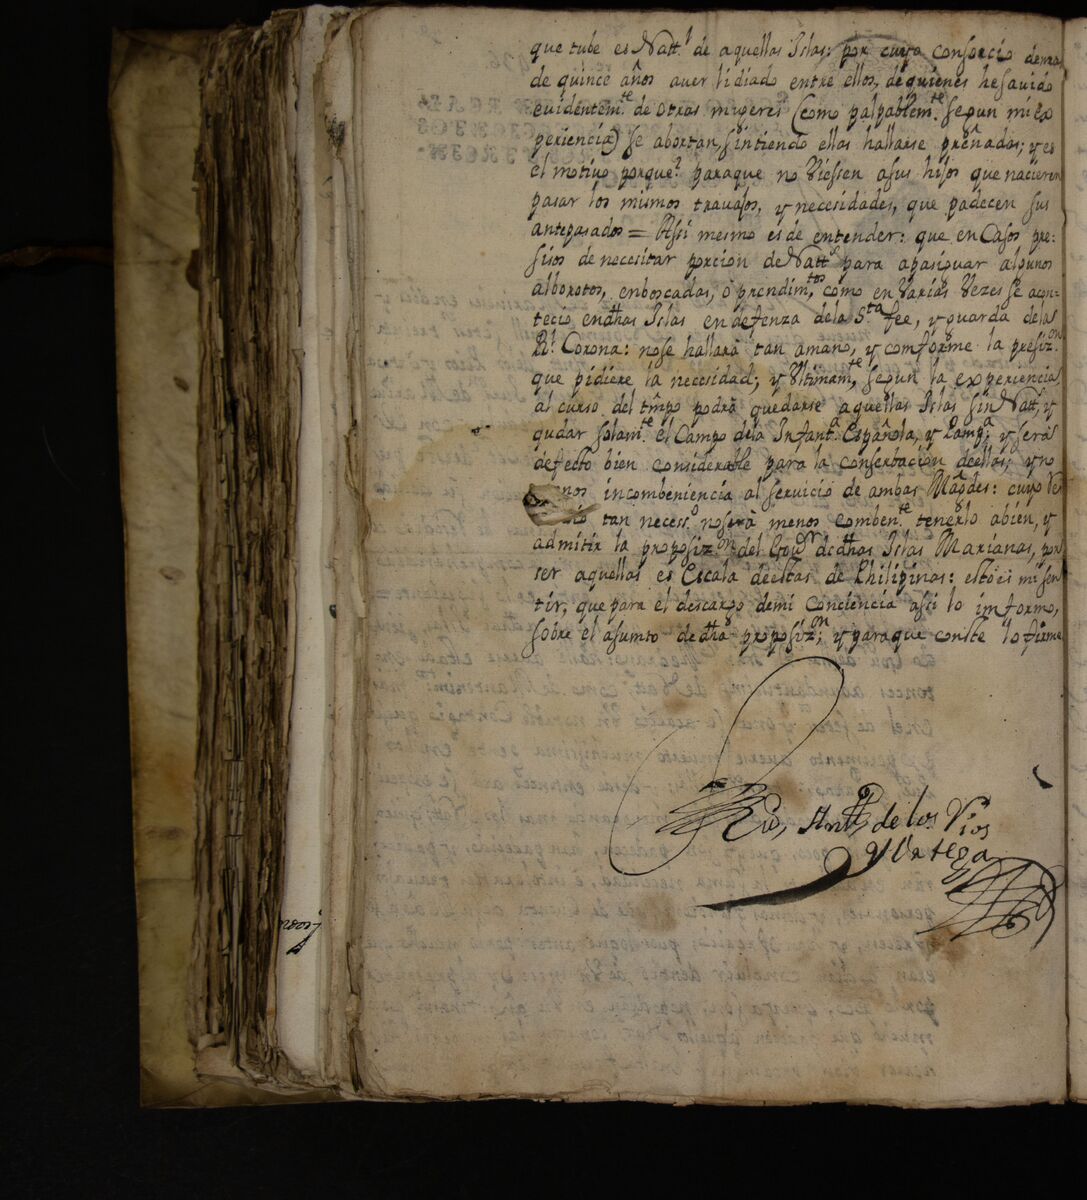 que tube es Natt.l de aquellas Islas: por cuyo consorcio demas
de quince años aver lidiado entre ellos, de quienes he savido
evidentem.te de otras mugeres (como palpablem.te segun mi ex
periencia) se abortan, sintiendo ellas hallarse preñadas; y es
el motivo porque? paraque no viessen asus hijos que nacieren
pasar los mismos travajos, y necesidades, que padecen sus
antepasados = Assi mesmo es de entender: que en Casos pre:
sisos de necesitar porcion de Natt.s para apasiguar algunos
alborotos, emboscadas, ò prendim.tos, como en varias vezes se acon-
tecio en dhas Islas en defenza dela S.ta fee, y guarda dela
Rl. Corona: nose hallarà tan amano, y comforme la presiz.on
que pidiere la necesidad; y Ultimam.te, segun la experiencia
al curso del tmpo podrà quedarse aquellas Islas sin Natt.s, y
qudar solam.te el Campo dela Infant.a Española, y Pamp.a; y serà
defecto bien considerable para la conserbacion deellas; y no
menos incombeniencia al servicio de ambas Magdes: cuyo
tan necess.o noserà menos comben.te tenerlo abien, y
admitir la proposiz.on del Gov.r de dhas Islas Marianas, por
ser aquellas es Escala deestas de Philipinas: esto es mi sen
tir, que para el descargo demi conciencia assi lo imformo,
sobre el asumto de dha proposiz.on; y paraque conste lo firme
Ant.o de los Rios
y Urtega